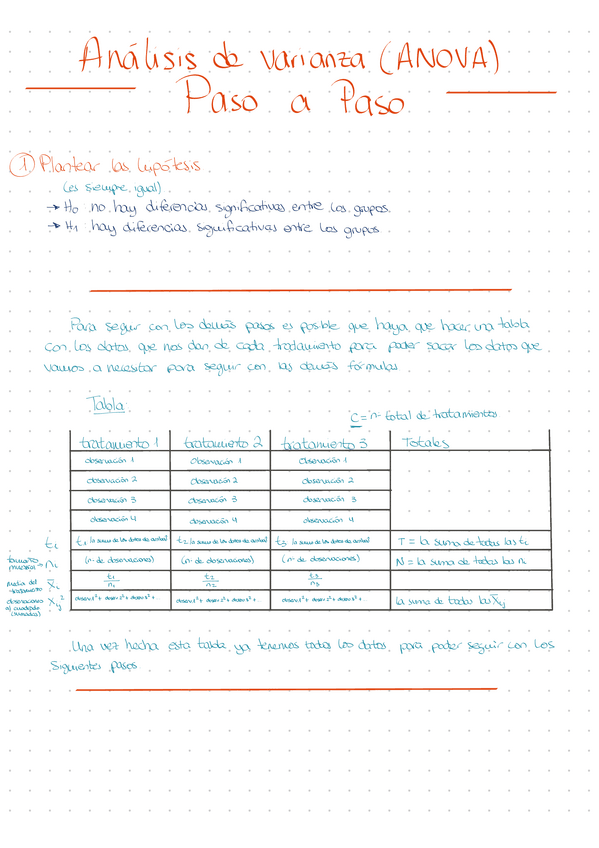 Análisis de varianza (ANOVA)
Paso a Paso
① Plantear las hipótesis
(es siempre igual)
→ H₀ no hay diferencias significativas entre los grupos.
→ H₁ hay diferencias significativas entre los grupos
Para seguir con los demás pasos es posible que haya que hacer una tabla
con los datos que nos dan de cada tratamiento para poder sacar los datos que
vamos a necesitar para seguir con las demás fórmulas
Tabla:
C = nº total de tratamientos
tratamiento 1 tratamiento 2 tratamiento 3 Totales
observación 1 observación 1 observación 1
observación 2 observación 2 observación 2
observación 3 observación 3 observación 3
observación 4 observación 4 observación 4
tᵢ t₁ (a suma de los datos de arriba) t₂ (a suma de los datos de arriba) t₃ (a suma de los datos de arriba) T = la suma de todas las tᵢ
tamaño muestral = nᵢ (nº de observaciones) (nº de observaciones) (nº de observaciones) N = la suma de todas las nᵢ
media del tratamiento x̄ᵢ t₁/n₁ t₂/n₂ t₃/n₃
observaciones al cuadrado (sumadas) Xᵢⱼ² observ1² + observ2² + observ3² + .. observ1² + observ2² + observ3² + .. observ1² + observ2² + observ3² + .. la suma de todas las X̄ᵢⱼ
Una vez hecha esta tabla ya tenemos todos los datos para poder seguir con los
siguientes pasos